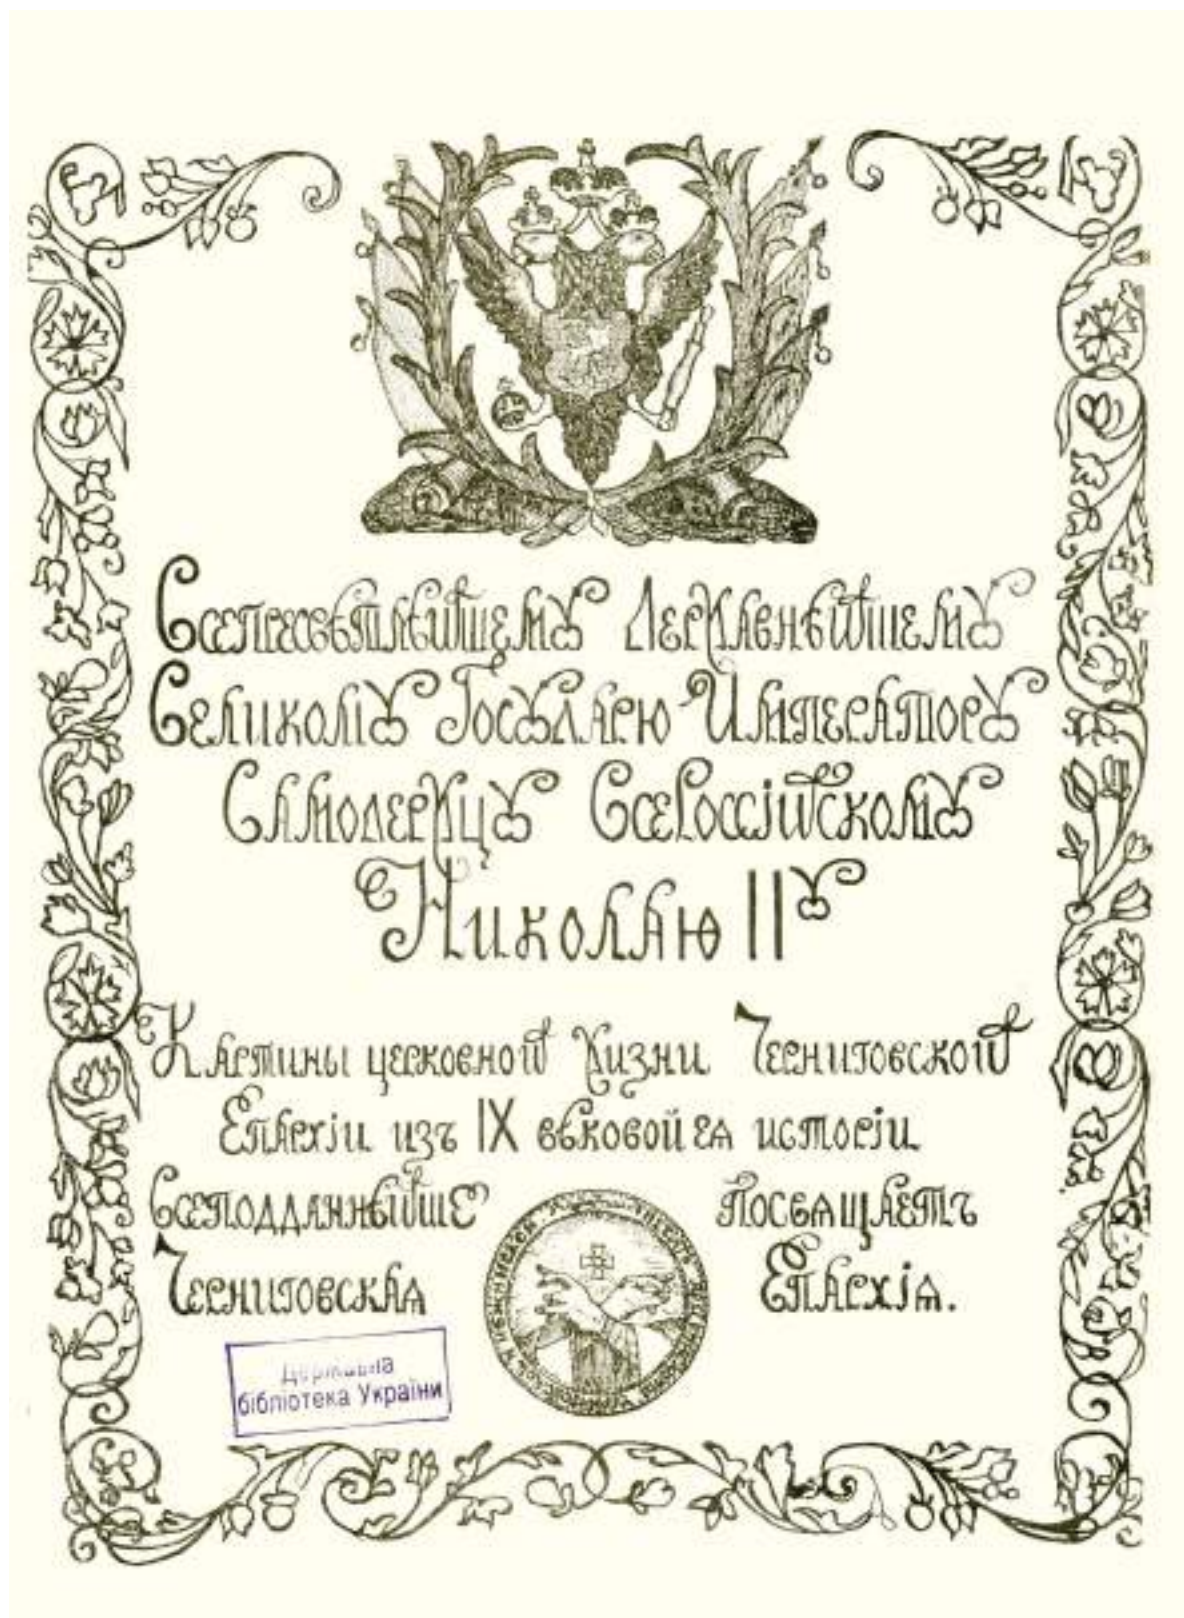 Всепресвѣтлѣйшему Державнѣйшему
Великому Государю Императору
Самодержцу Всероссійскому
Николаю II У
Картины церковной жизни Черниговской
Епархіи изъ IX вѣковой ея исторіи
Всеподданнѣйше посвящаетъ
Черниговская Епархія.
Державна
бібліотека України